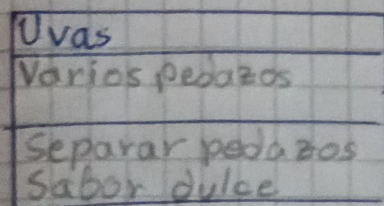 Uvas
Varios pedazos
Separar pedazos
Sabor dulce